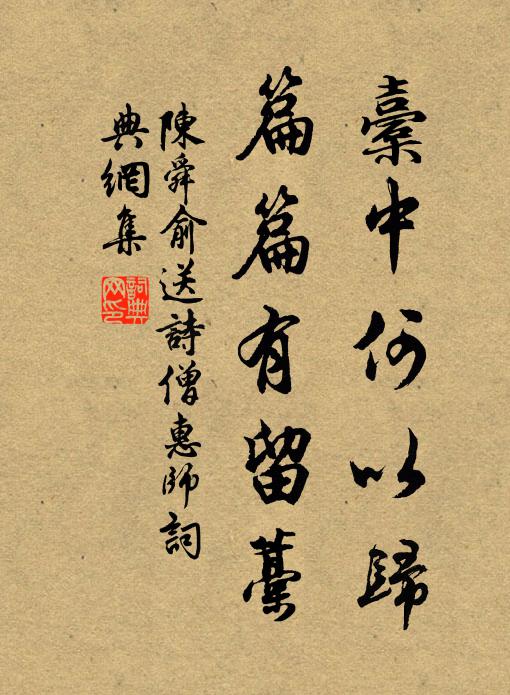 橐中何以歸
篇篇有留藁
陳舜俞送詩僧惠師詞
典網集
詞典网印